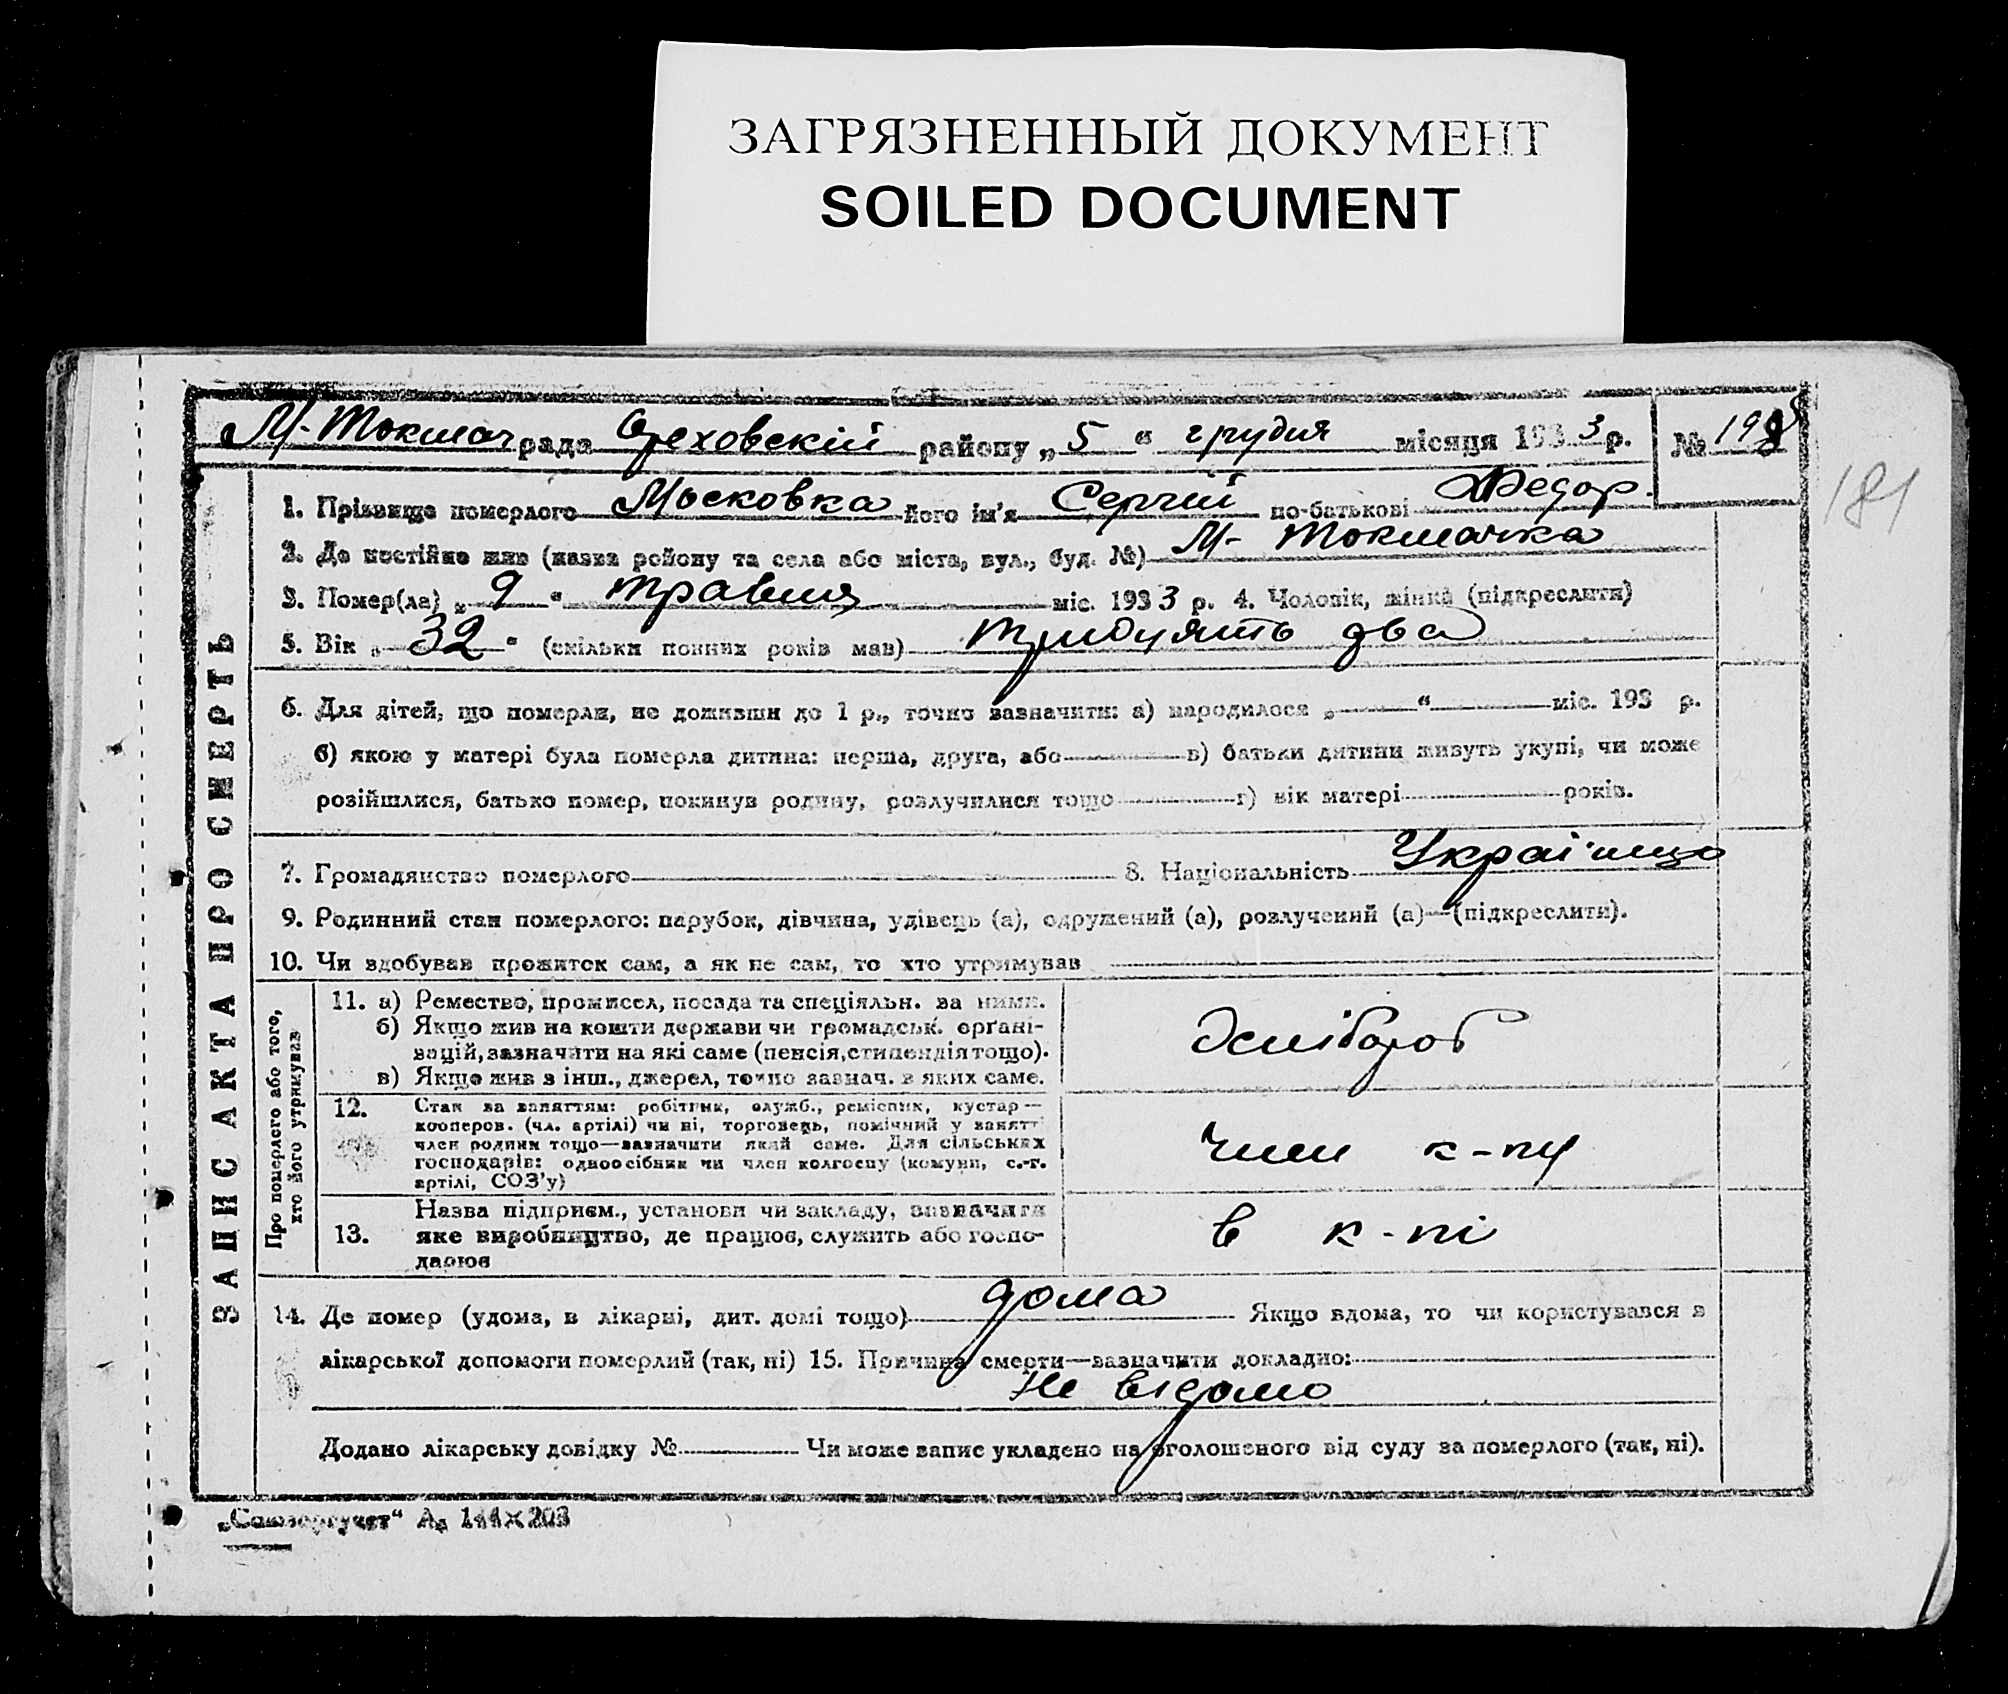 ЗАГРЯЗНЕННЫЙ ДОКУМЕНТ
SOILED DOCUMENT
М-Токмач рада Ореховскій району „5“ грудня місяця 1933 р. №
181
ЗАПИС АКТА ПРО СМЕРТЬ
1. Прізвище померлого Московка його ім'я Сергій по-батькові Федор.
2. Де постійно жив (назва району та села або міста, вул., буд. №) М- Токмачка
3. Помер(ла) „9“ травня міс. 1933 р. 4. Чоловік, жінка (підкреслити)
5. Вік „32“ (скільки повних років мав) тридцять два
6. Для дітей, що померли, не доживши до 1 р., точно зазначити: а) народилося „ “ міс. 193 р.
б) якою у матері була померла дитина: перша, друга, або в) батьки дитини живуть укупі, чи може
розійшлися, батько помер, покинув родину, розлучилися тощо г) вік матері років.
7. Громадянство померлого 8. Національність
9. Родинний стан померлого: парубок, дівчина, удівець (а), одружений (а), розлучений (а)—(підкреслити).
10. Чи здобував прожиток сам, а як не сам, то хто утримував
Про померлого або того,
хто його утримував
11. а) Ремество, промисел, посада та спеціяльн. за ними.
б) Якщо жив на кошти держави чи громадськ. орґані-
зацій, зазначити на які саме (пенсія, стипендія тощо).
в) Якщо жив з інш., джерел, точно зазнач. з яких саме.
12. Стан за заняттям: робітник, служб., ремісник, кустар—
кооперов. (чл. артілі) чи ні, торговець, помічний у занятті
член родини тощо—зазначити який саме. Для сільських
господарів: одноосібник чи член колгоспу (комуни, с.-г.
артілі, СОЗ'у)
член к-пу
13. Назва підприєм., установи чи закладу, зазначити
яке виробництво, де працює, служить або госпо-
дарює
в к-пі
14. Де помер (удома, в лікарні, дит. домі тощо) дома Якщо вдома, то чи користувався з
лікарської допомоги померлий (так, ні) 15. Причина смерти—зазначити докладно:
не відомо
Додано лікарську довідку № Чи може запис укладено на оголошеного від суду за померлого (так, ні).
„Союзоргучет“ А₅ 144×203